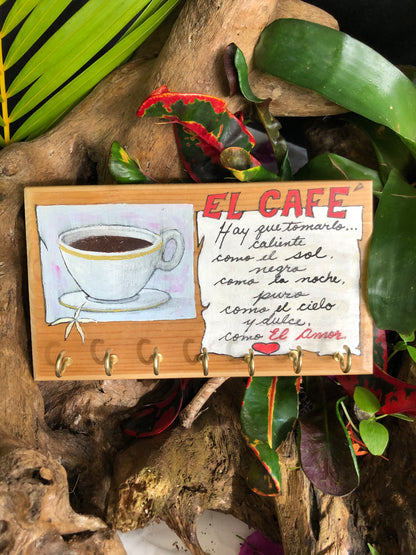 EL CAFE
Hay que tomarlo...
caliente
como el sol,
negro
como la noche,
puro
como el cielo
y dulce,
como El Amor.